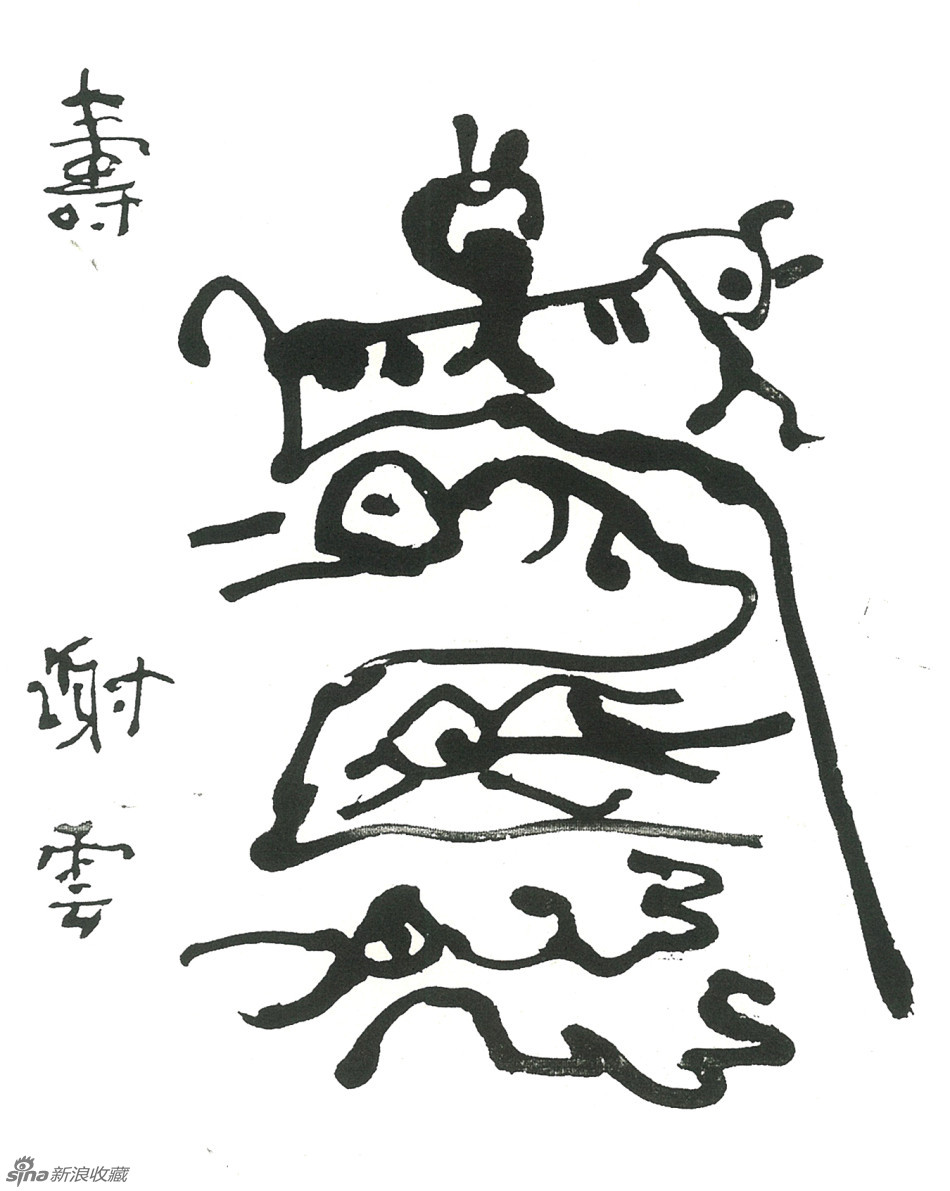 壽
謝
雲
sina新浪收藏